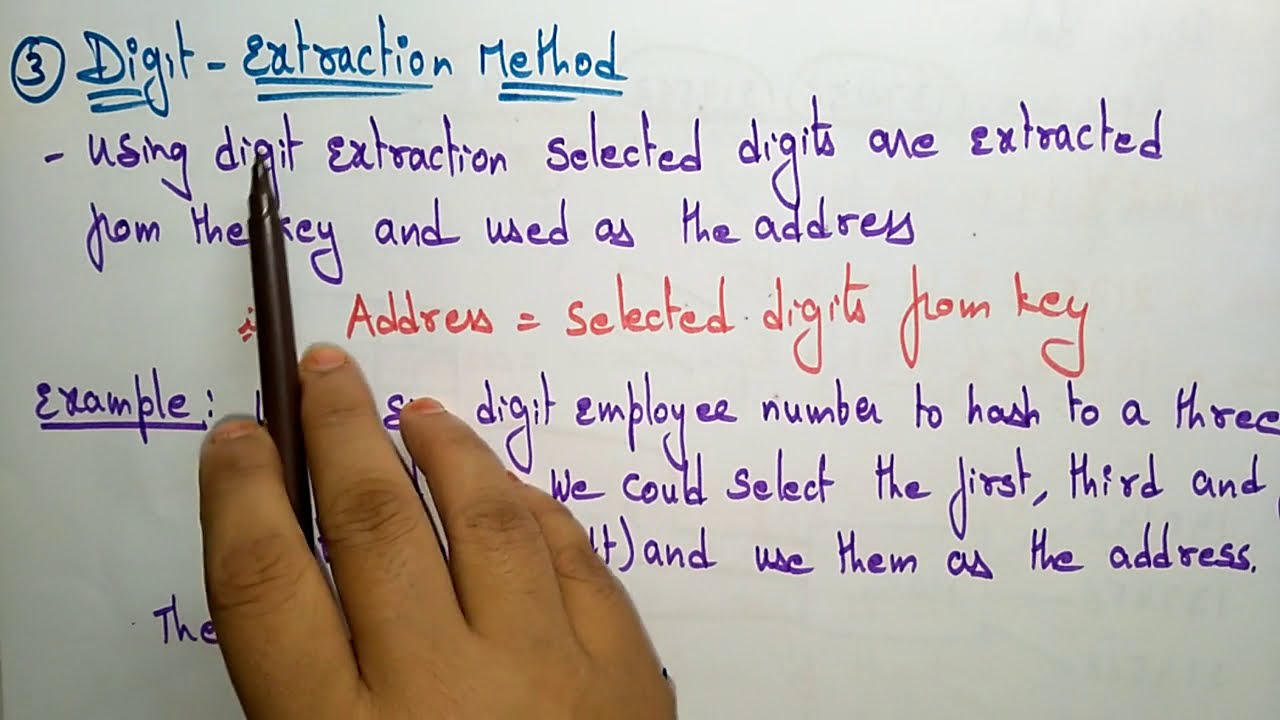 ③ Digit-Extraction Method
- using digit extraction selected digits are extracted
from the key and used as the address
Address = selected digits from key
Example: digit employee number to hash to a three
we could select the first, third and
and use them as the address.
The